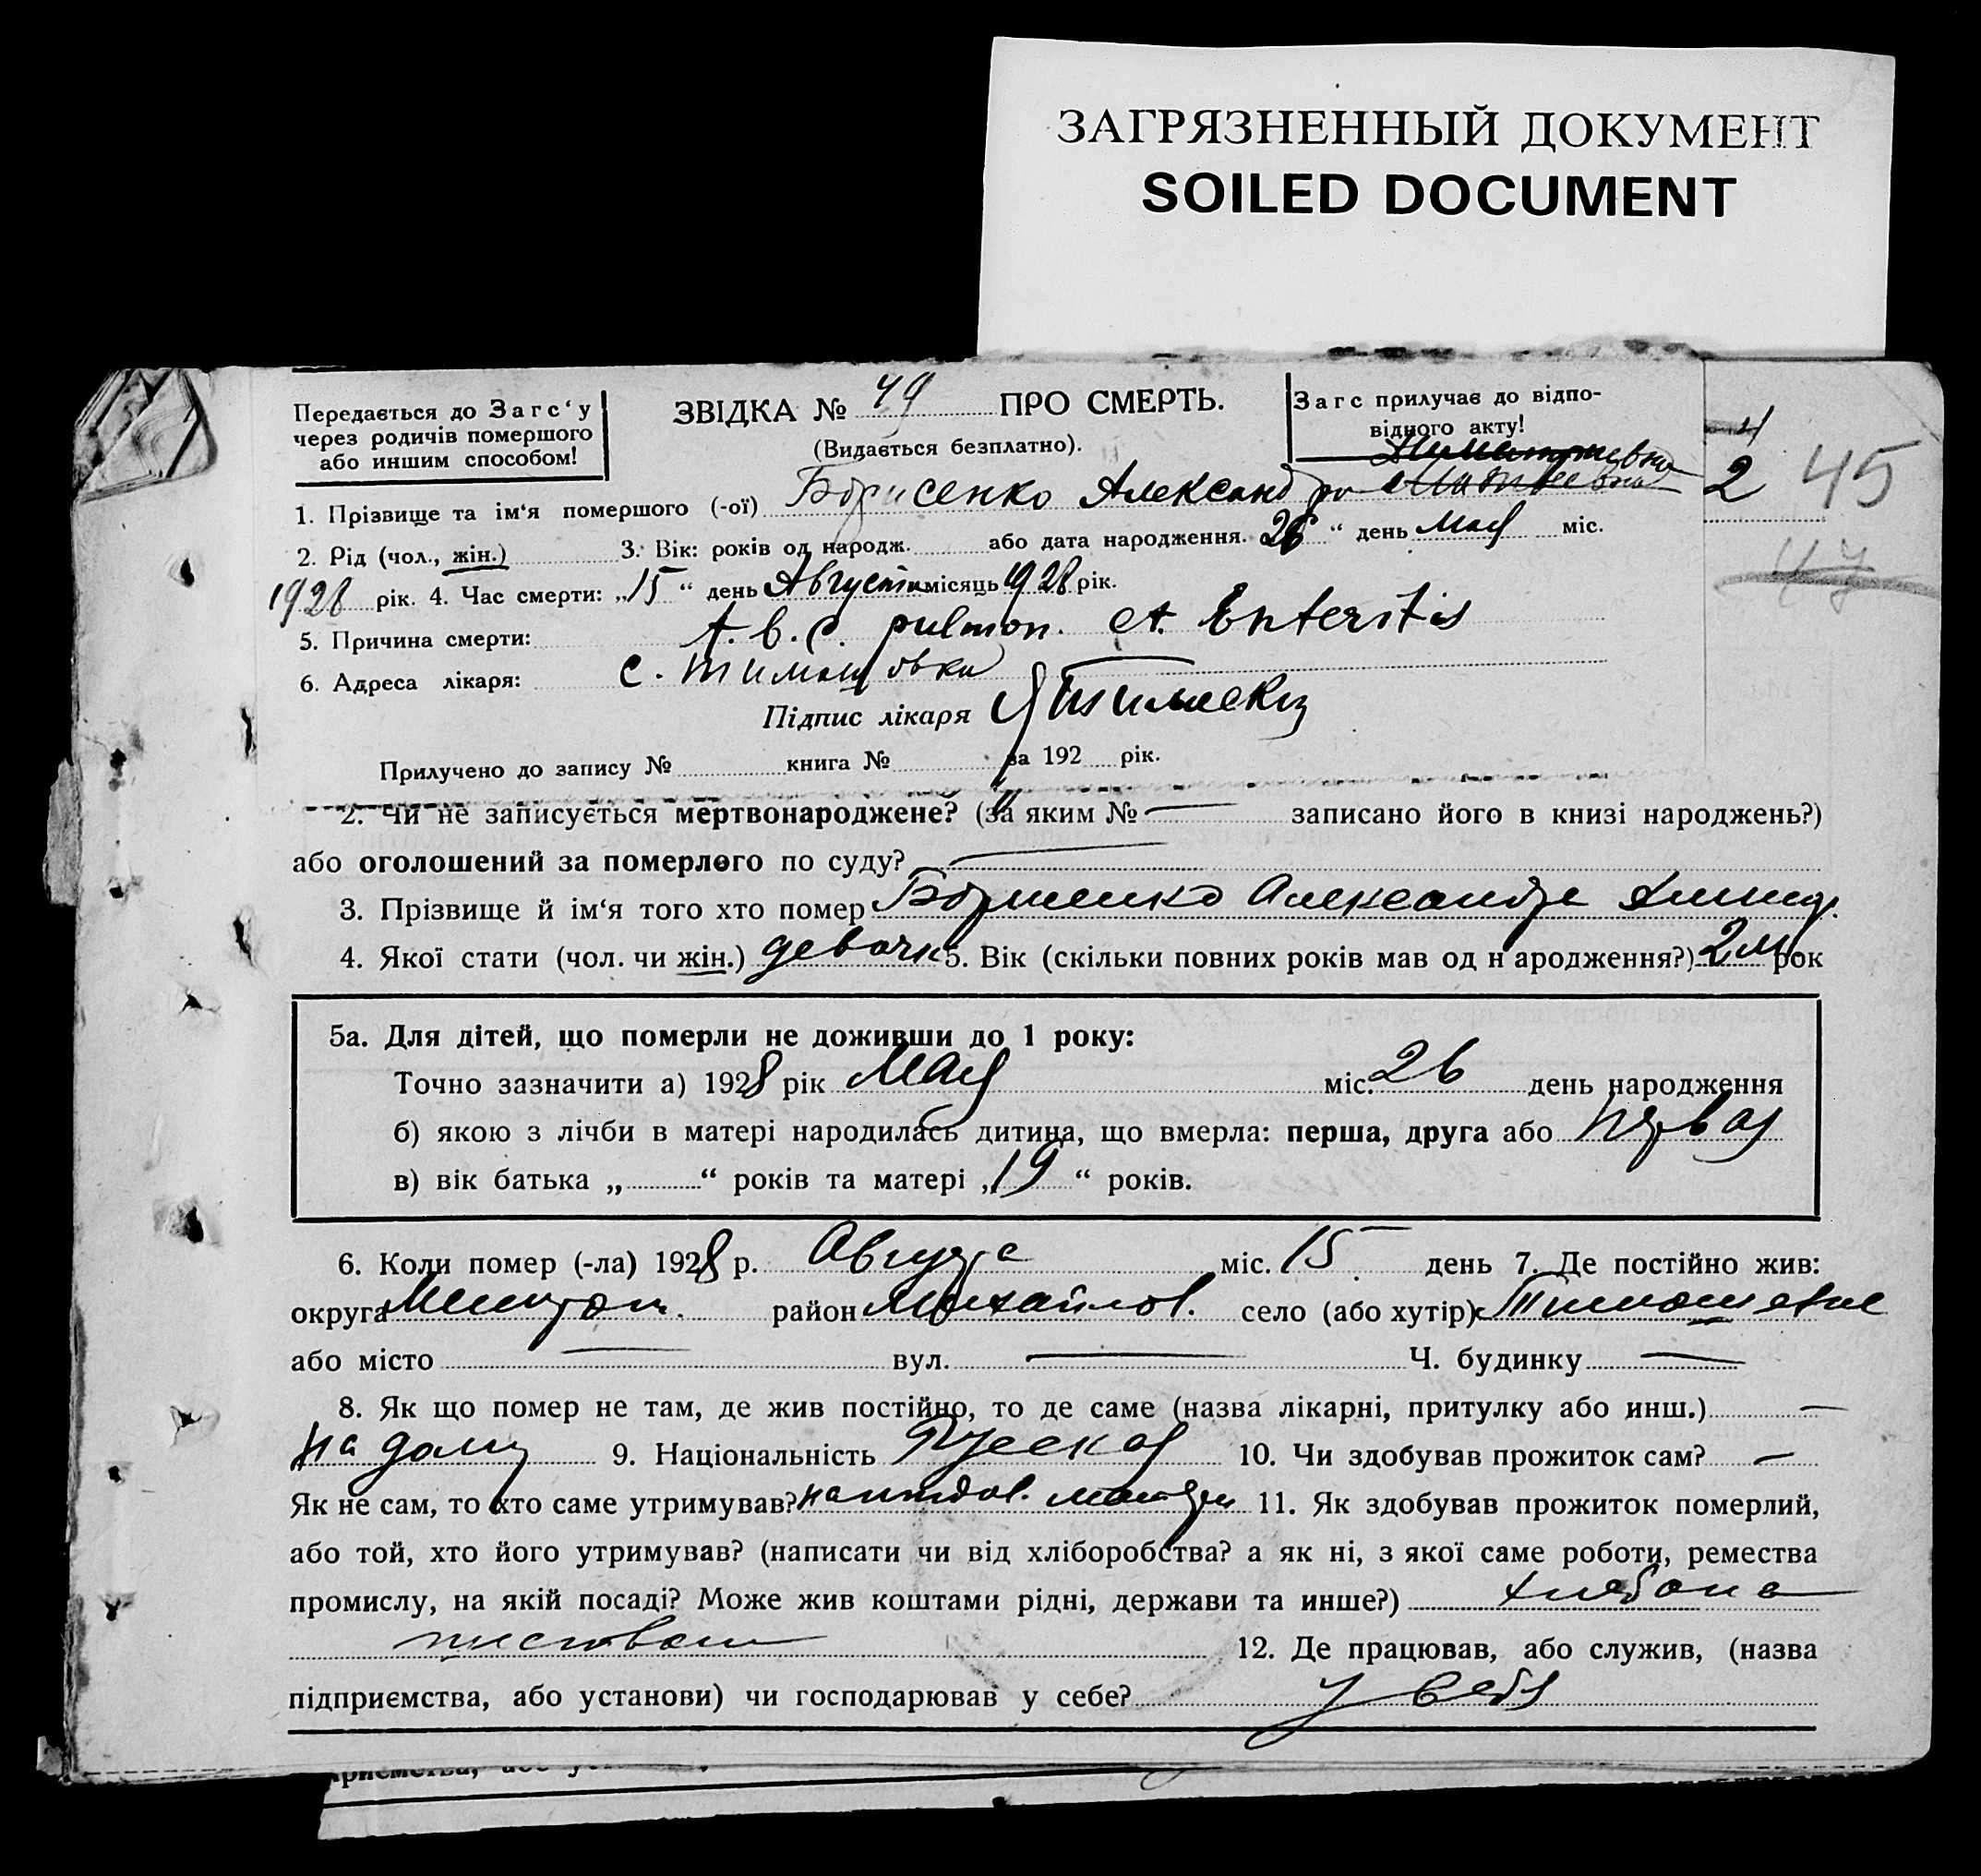 ЗАГРЯЗНЕННЫЙ ДОКУМЕНТ
SOILED DOCUMENT
Передається до Загс‘у
через родичів помершого
або иншим способом!
ЗВІДКА № 49 ПРО СМЕРТЬ.
(Видається безплатно).
Загс прилучає до відпо-
відного акту!
4
2 45
47
1. Прізвище та ім‘я помершого (-ої) Борисенко Александра
2. Рід (чол., жін.) 3. Вік: років од народж. або дата народження. 26 “ день Мая міс.
1928 рік. 4. Час смерти: „15 “ день Августа місяць 1928 рік.
5. Причина смерти: t. b. c. pulmon. et. Enteritis
6. Адреса лікаря: с. Тимошовка
Підпис лікаря
Прилучено до запису № книга № за 192 рік.
2. Чи не записується мертвонароджене? (за яким № — записано його в книзі народжень?)
або оголошений за померлого по суду? —
3. Прізвище й ім‘я того хто помер Борисенко Александра
4. Якої стати (чол. чи жін.) девочк 5. Вік (скільки повних років мав од н ародження?) 2 м. рок
5а. Для дітей, що померли не доживши до 1 року:
Точно зазначити а) 1928 рік Мая міс. 26 день народження
б) якою з лічби в матері народилась дитина, що вмерла: перша, друга або первая
в) вік батька „ “ років та матері „19 “ років.
6. Коли помер (-ла) 1928 р. Августа міс. 15 день 7. Де постійно жив:
округа Мелитоп. район Михайлов. село (або хутір) Тимошевка
або місто — вул. — Ч. будинку —
8. Як що помер не там, де жив постійно, то де саме (назва лікарні, притулку або инш.) —
на дому 9. Національність Русская 10. Чи здобував прожиток сам? —
Як не сам, то хто саме утримував? на иждов. матери 11. Як здобував прожиток померлий,
або той, хто його утримував? (написати чи від хліборобства? а як ні, з якої саме роботи, ремества
промислу, на якій посаді? Може жив коштами рідні, держави та инше?) хлебопа
шество 12. Де працював, або служив, (назва
підприємства, або установи) чи господарював у себе? у себя